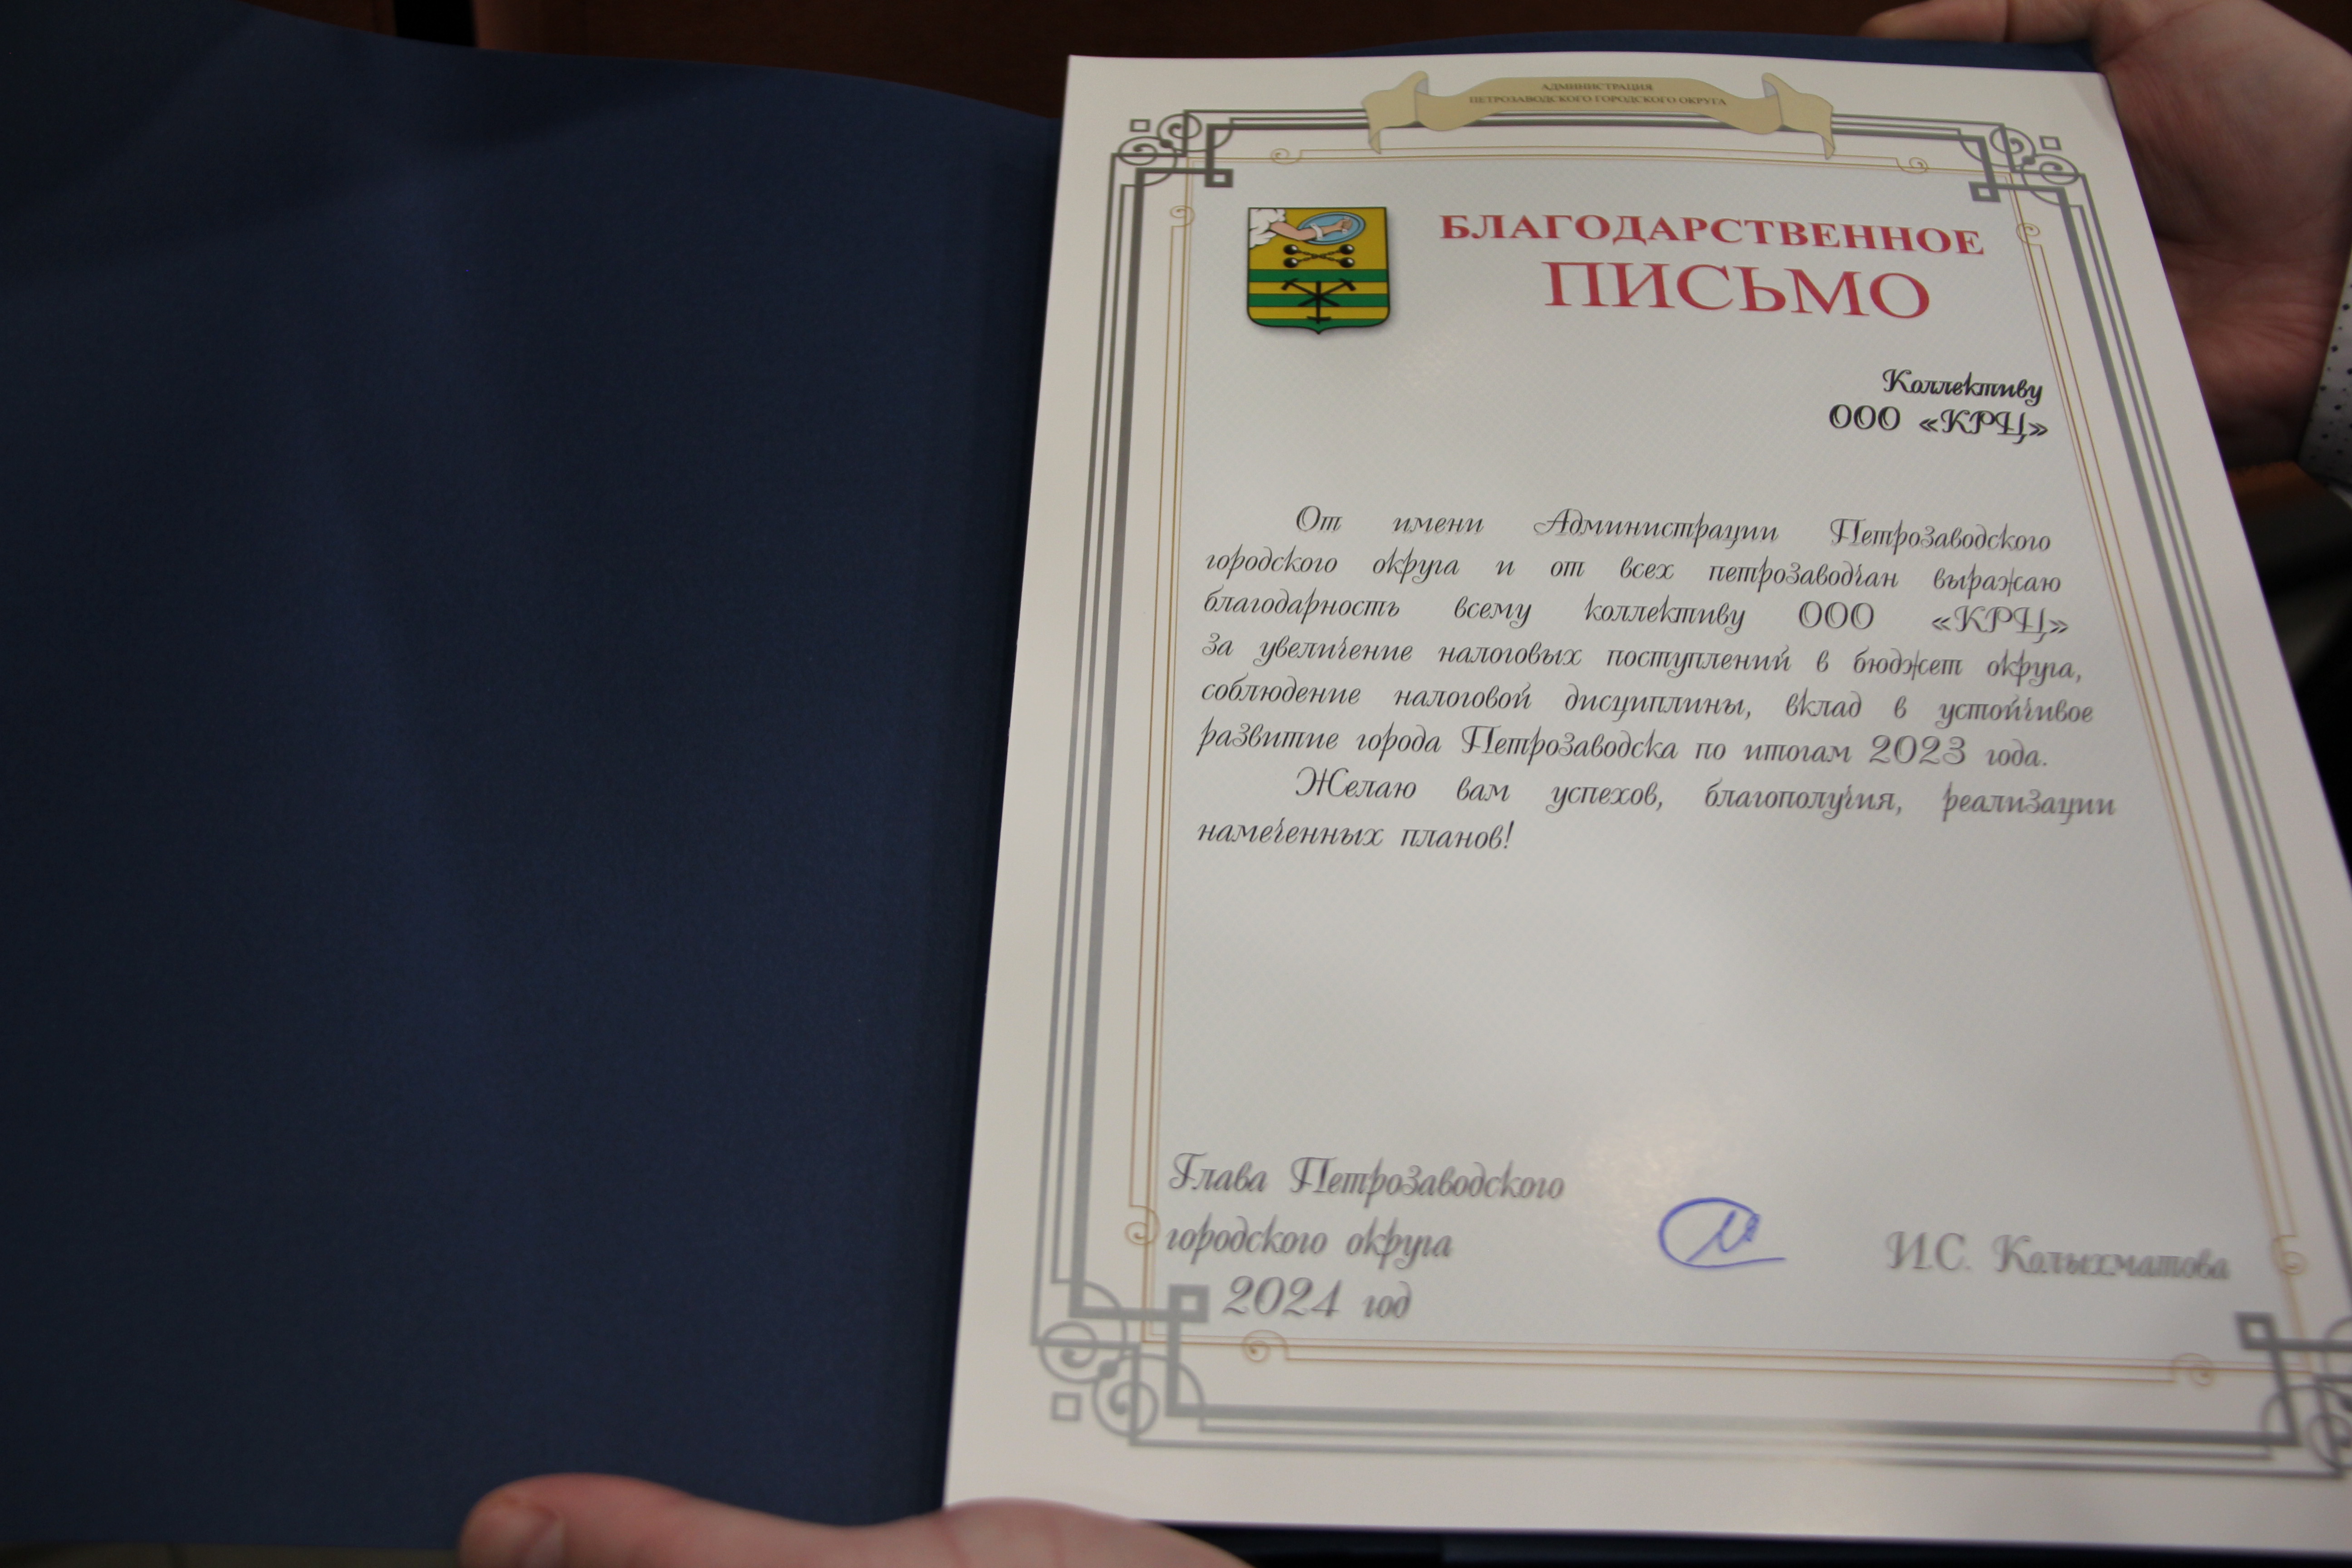 АДМИНИСТРАЦИЯ
ПЕТРОЗАВОДСКОГО ГОРОДСКОГО ОКРУГА
БЛАГОДАРСТВЕННОЕ
ПИСЬМО
Коллективу
ООО «КРЦ»
От имени Администрации Петрозаводского
городского округа и от всех петрозаводчан выражаю
благодарность всему коллективу ООО «КРЦ»
за увеличение налоговых поступлений в бюджет округа,
соблюдение налоговой дисциплины, вклад в устойчивое
развитие города Петрозаводска по итогам 2023 года.
Желаю вам успехов, благополучия, реализации
намеченных планов!
Глава Петрозаводского
городского округа
И.С. Колыхматова
2024 год